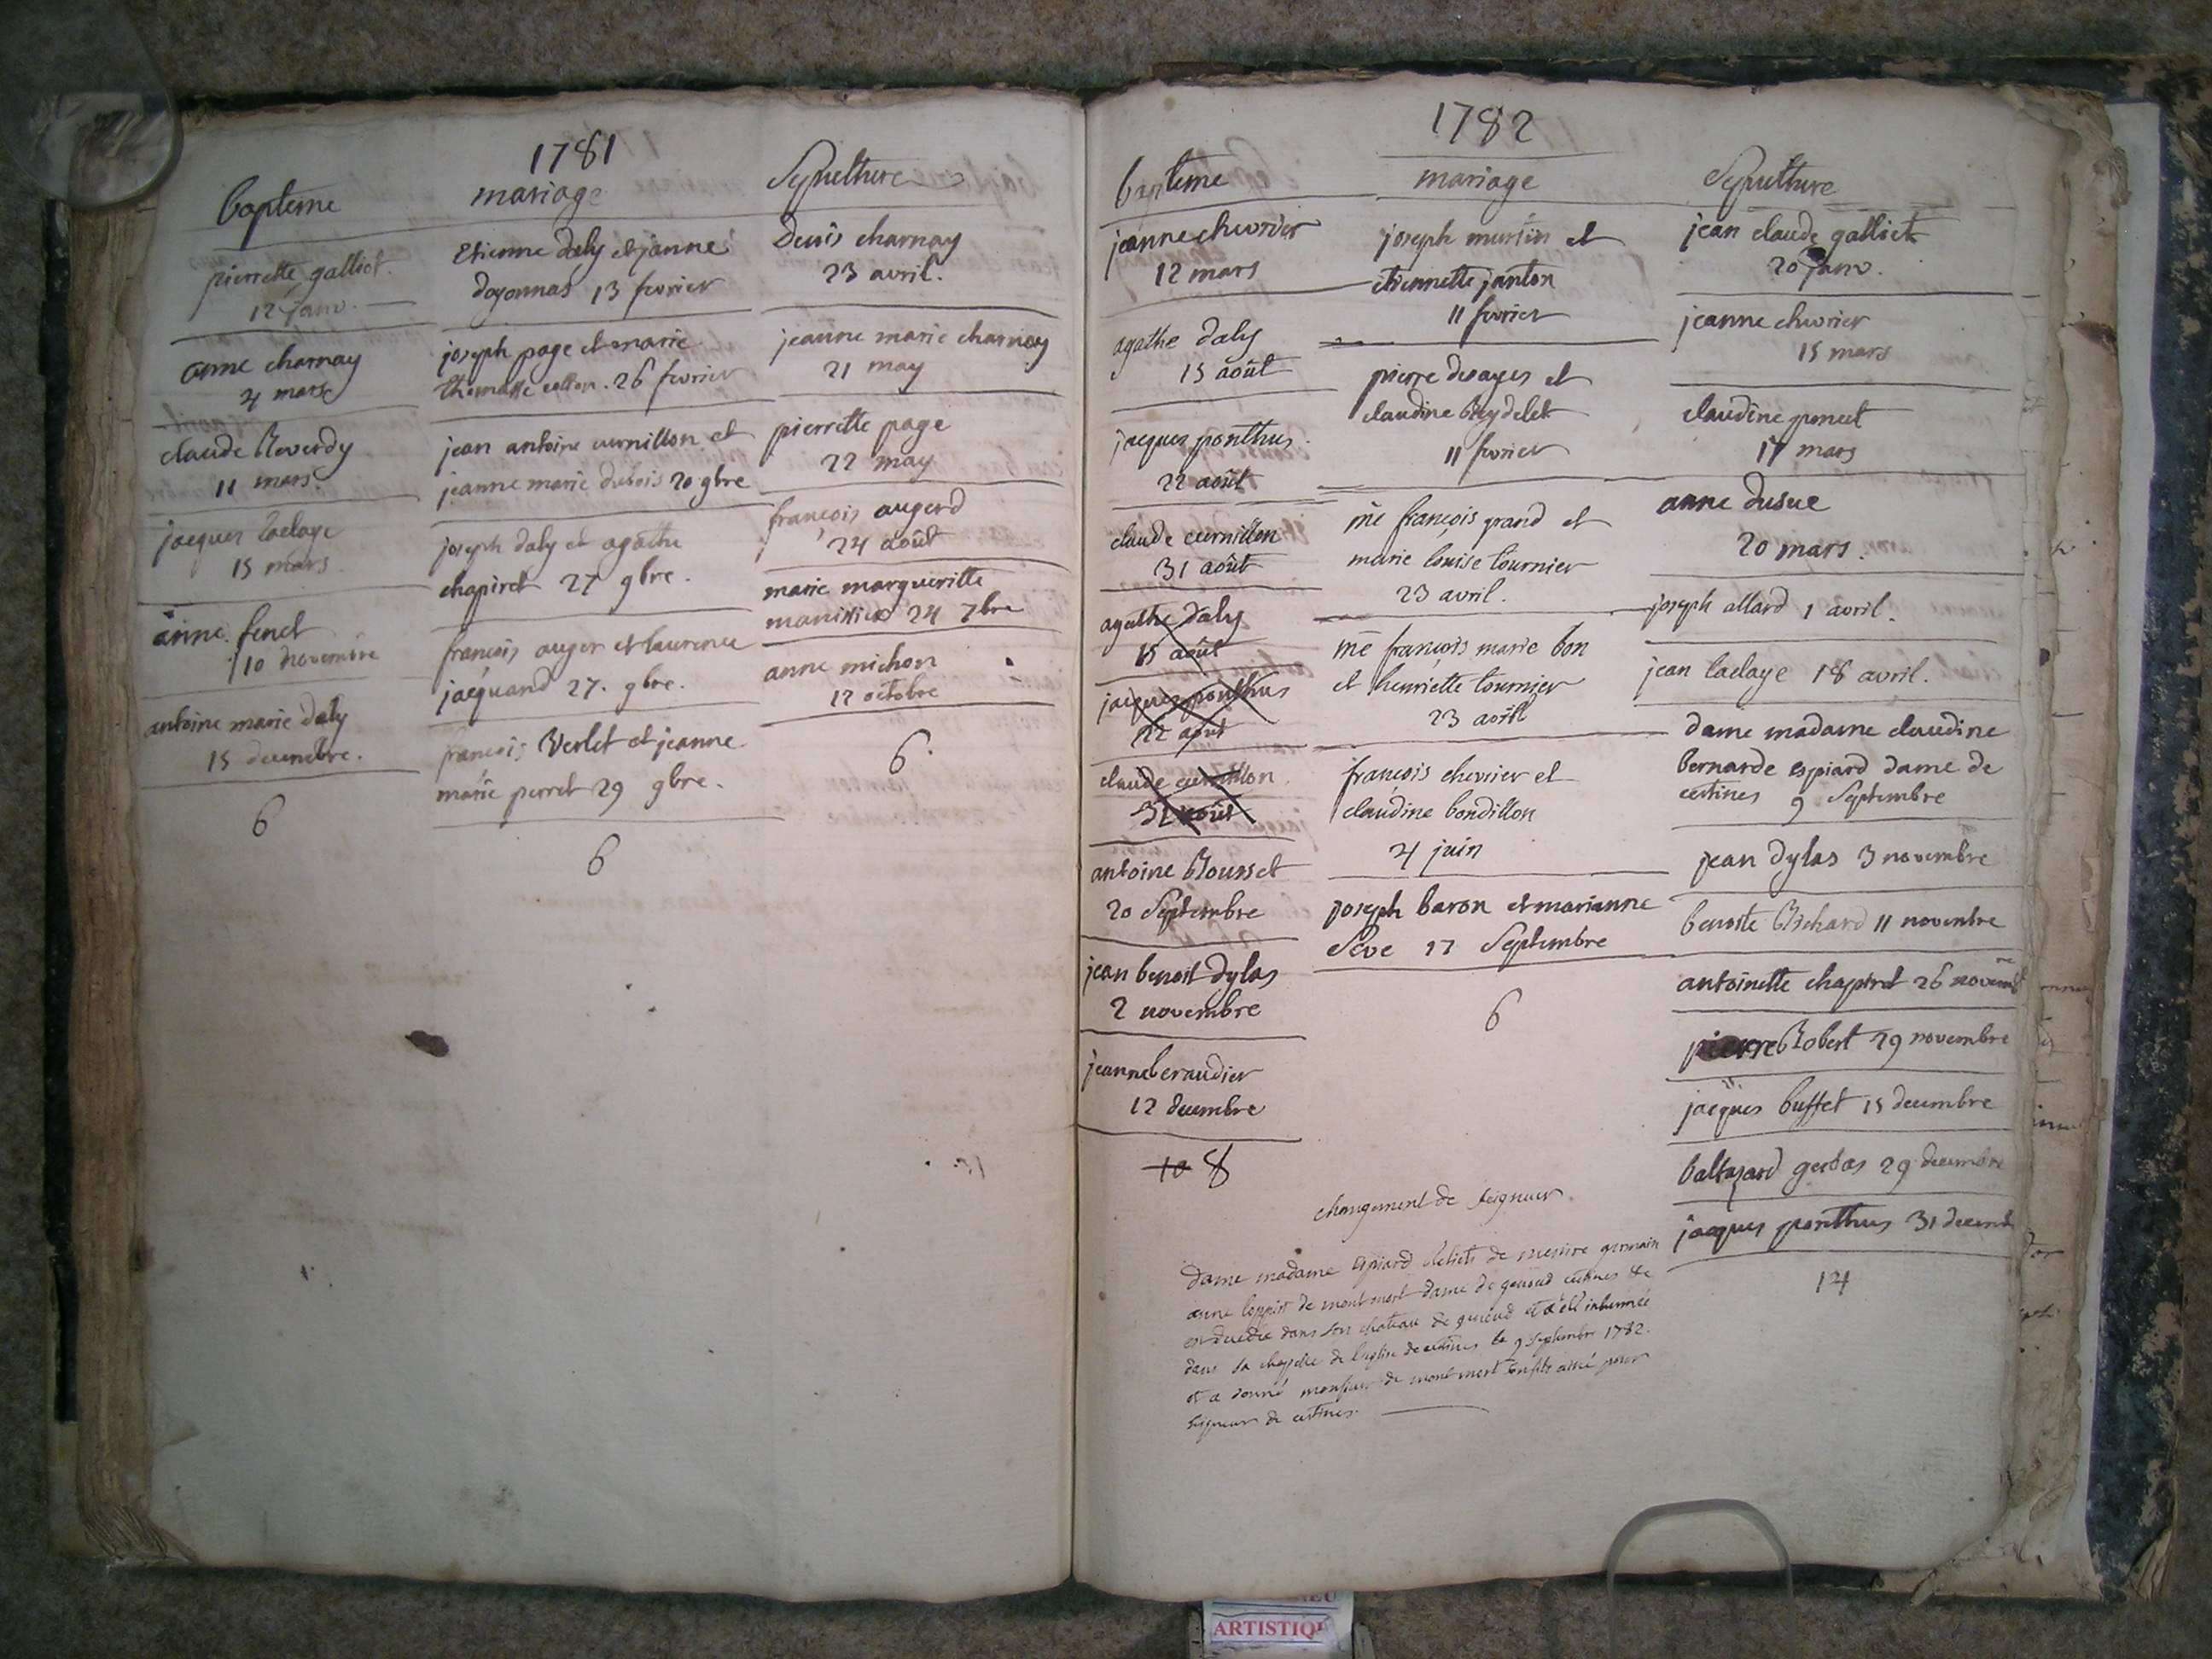 1781
bapteme
pierrette galliet
12 janv.
anne charnay
4 mars
claude Reverdy
11 mars
jacques laelaye
15 mars
anne fenet
10 novembre
antoine marie daly
15 decembre.
6
mariage
Etienne daly et janne
doyonnas 13 fevrier
joseph page et marie
thomasse collon. 26 fevrier
jean antoine curnillon et
jeanne marie dubois 20 9bre
joseph daly et agathe
chapiret 27 9bre.
françois auger et laurence
jacquand 27. 9bre.
françois Verlet et jeanne
marie perret 29 9bre.
6
Sepulture
Denis charnay
23 avril.
jeanne marie charnay
21 may
pierrette page
22 may
françois augerd
24 août
marie margueritte
24 7bre
anne michon
12 octobre
6.
1782
bapteme
jeanne chevrier
12 mars
agathe daly
15 août
jacques ponthus.
22 août
claude curnillon
31 août
agathe daly
15 août
jacques ponthus
22 août
claude curnillon
31 août
antoine Rousset
20 Septembre
jean benoit dylas
2 novembre
jeanne beraudier
12 decembre
10 8
mariage
joseph murtin et
etiennette janton
11 fevrier
pierre desayes et
claudine Reydelet
11 fevrier
me françois grand et
marie louise tournier
23 avril.
me françois marie bon
et henriette tournier
23 avril
françois chevrier et
claudine bondillon
4 juin
joseph baron et marianne
Seve 17 Septembre
6
Sepulture
jean claude galliet
20 janv.
jeanne chevrier
15 mars
claudine poncet
17 mars
anne dusue
20 mars.
joseph allard 1 avril.
jean laelaye 18 avril.
dame madame claudine
bernarde espiard dame de
certines 9 Septembre
jean dylas 3 novembre
benoite Richard 11 novembre
antoinette chapiret 26 novembre
pierre Robert 29 novembre
jacques buffet 15 decembre
baltazard gerbas 29 decembre
jacques ponthus 31 decemb
14
changement de Seigneur.
dame madame Espiard de messire germain
anne loppin de montmort dame de gueured certines &c
est decedée dans son chateau de gueured et a été inhumée
dans sa chapelle de l'eglise de certines le 9 septembre 1782.
et a donné monsieur de montmort son fils ainé pour
seigneur de certines.
ARTISTIQ